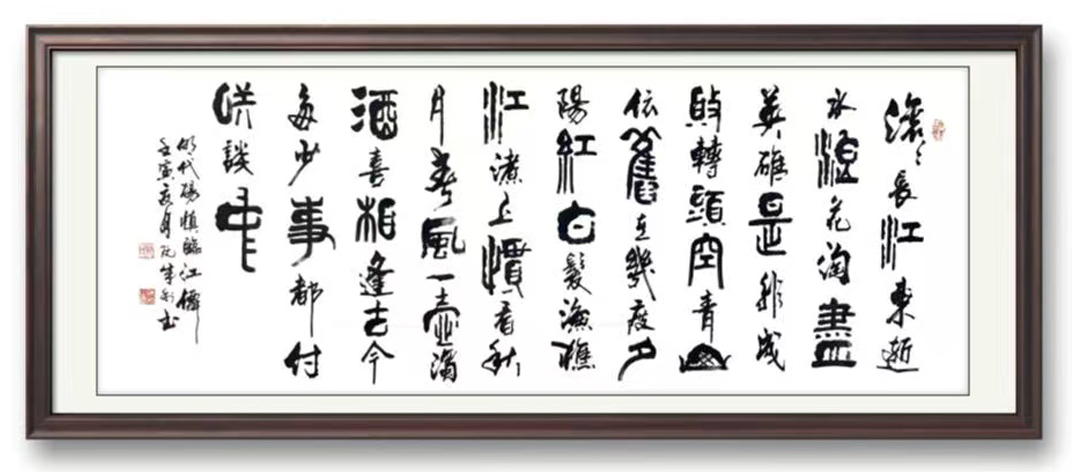 滚々長江東逝
水浪花淘盡
英雄是非成
敗轉頭空青山
依舊在幾度夕
陽紅白髮漁樵
江渚上慣看秋
月春風一壺濁
酒喜相逢古今
多少事都付
咲談中
明代楊慎臨江僊
壬寅夏月书